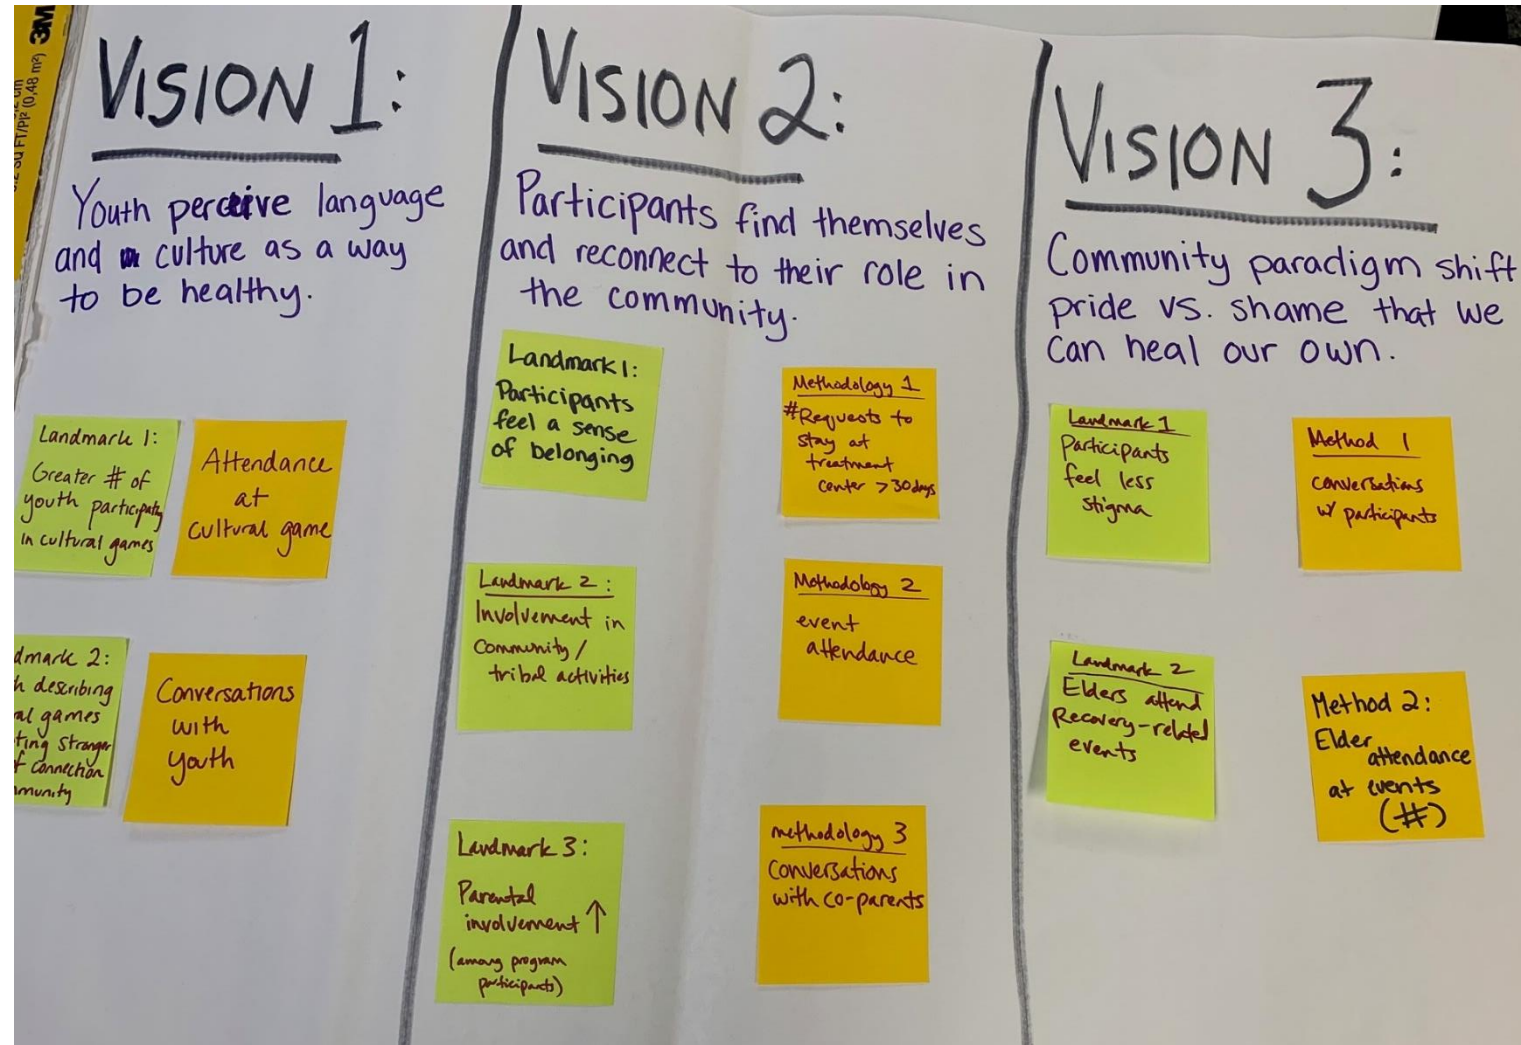 3M
FT/P|² (0,48 m²)
VISION 1:
Youth perceive language
and culture as a way
to be healthy.
Landmark 1:
Greater # of
youth participating
in cultural games
Attendance
at
cultural game
dmark 2:
h describing
al games
ting stronger
f connection
munity
Conversations
with
youth
VISION 2:
Participants find themselves
and reconnect to their role in
the community.
Landmark 1:
Participants
feel a sense
of belonging
Methodology 1
#Requests to
stay at
treatment
center >30days
Landmark 2:
Involvement in
Community/
tribal activities
Methodology 2
event
attendance
Landmark 3:
Parental
involvement ↑
(among program
participants)
methodology 3
Conversations
with co-parents
VISION 3:
Community paradigm shift
pride vs. shame that we
can heal our own.
Landmark 1
Participants
feel less
stigma
Method 1
conversations
w/ participants
Landmark 2
Elders attend
Recovery-related
events
Method 2:
Elder
attendance
at events
(#)